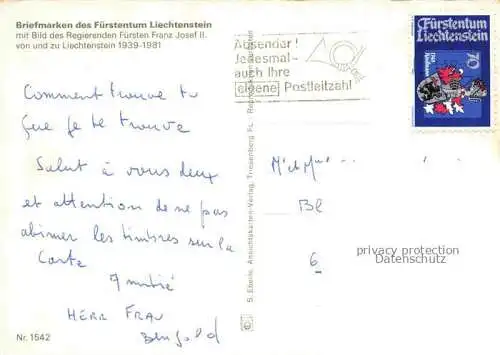 Briefmarken des Fürstentum Liechtenstein
mit Bild des Regierenden Fürsten Franz Josef II.
von und zu Liechtenstein 1939-1981
Absender!
Jedesmal
auch Ihre
eigene Postleitzahl
Fürstentum
Liechtenstein
70
Comment trouve tu
que je te trouve
Salut à vous deux
et attention de ne pas
abimer les timbres sur la
Carte
Amitié
HERR FRAU
Nr. 1542
S. Eberle, Ansichtskarten-Verlag, Triesenberg FL
M et Mme
Bl
6
privacy protection
Datenschutz